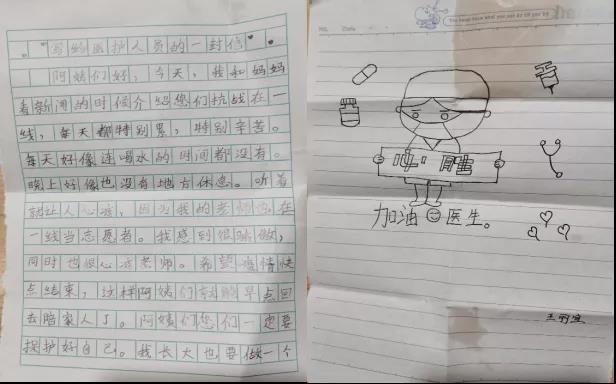 写给医护人员的一封信
阿姨们好，今天，我和妈妈
看新闻的时候介绍您们抗战在一
线，每天都特别累，特别辛苦。
每天好像连喝水的时间都没有。
晚上好像也没有地方休息。听着
就让人心疼，因为我的老师也在
一线当志愿者。我感到很骄傲，
同时也很心疼老师。希望疫情快
点结束，这样阿姨们就能早点回
去陪家人了。阿姨们您们一定要
保护好自己。我长大也要做一个
加油 医生。